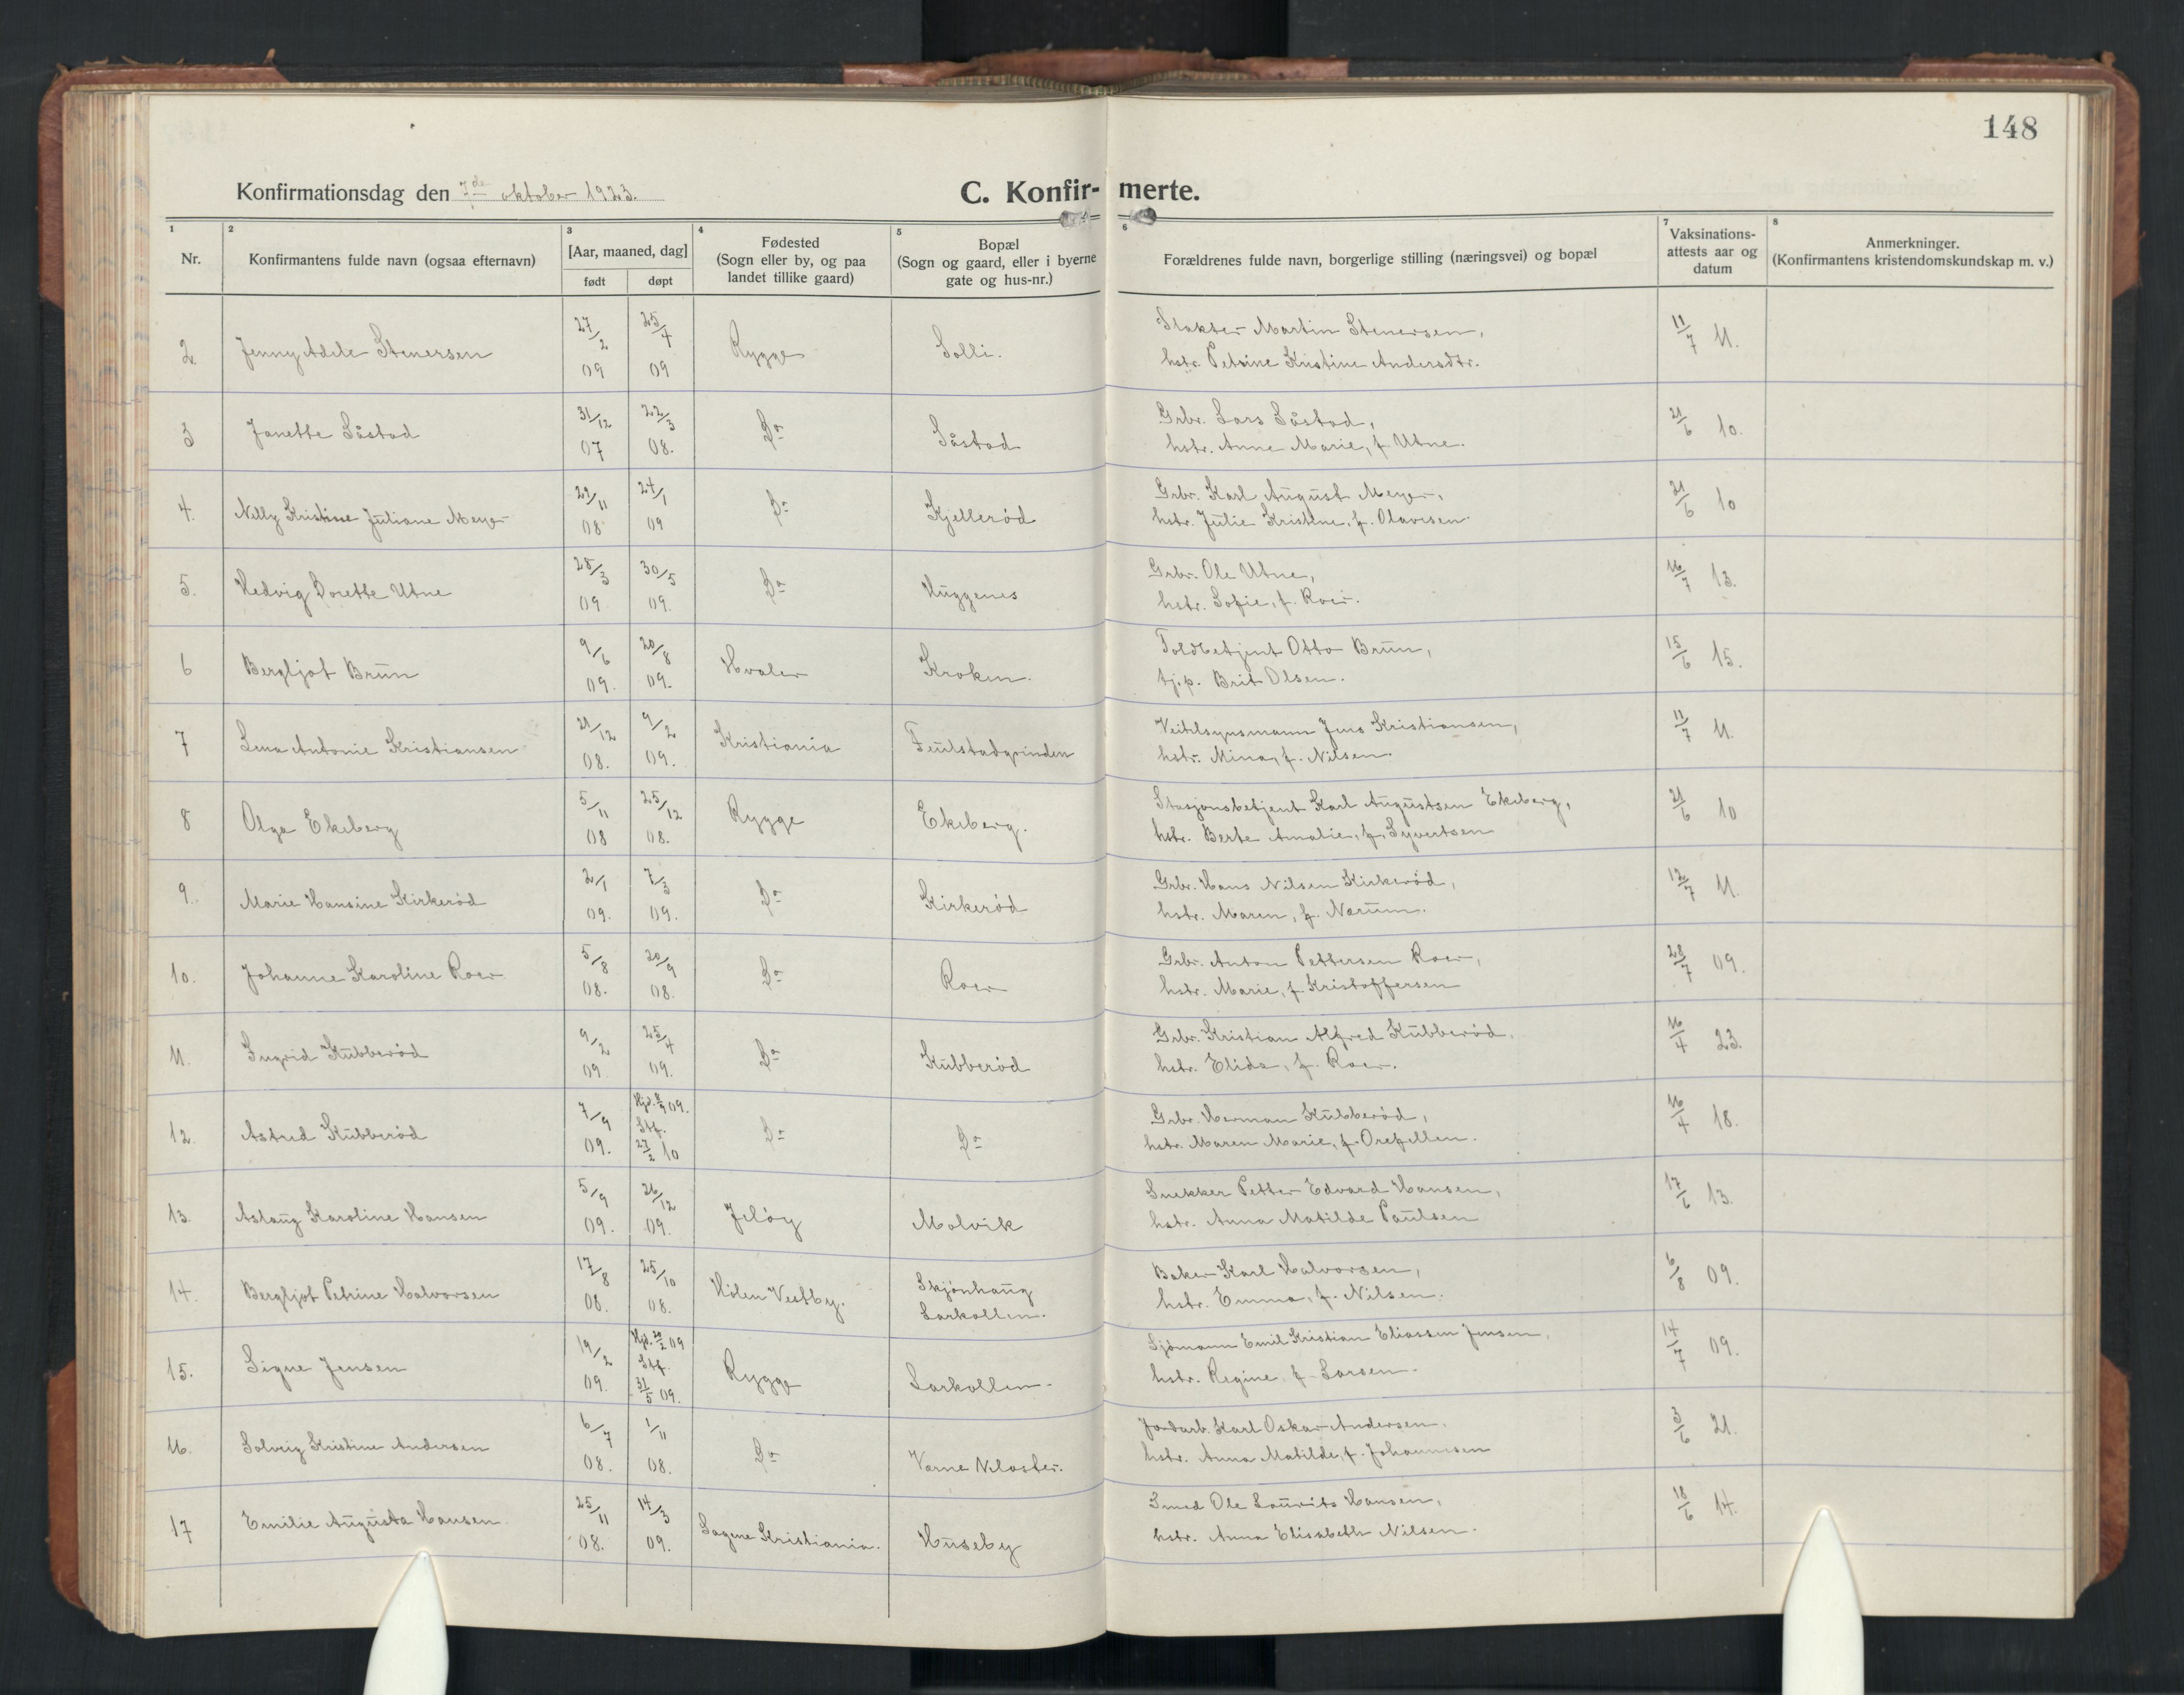 148
Konfirmationsdag den 7de oktober 1923.
C. Konfir- merte.
1 2 3 4 5 6 7 8
Nr.
Konfirmantens fulde navn (ogsaa efternavn)
[Aar, maaned, dag]
født døpt
Fødested
(Sogn eller by, og paa
landet tillike gaard)
Bopæl
(Sogn og gaard, eller i byerne
gate og hus-nr.)
Forældrenes fulde navn, borgerlige stilling (næringsvei) og bopæl
Vaksinations-
attests aar og
datum
Anmerkninger.
(Konfirmantens kristendomskundskap m. v.)
2. Jenny Adele Stenersen 27/2 09 25/4 09 Rygge Solli. Slakter Martin Stenersen, 11/7 11.
hstr. Petrine Kristine Andersdtr.
3 Janette Såstad 31/12 07 22/3 08. Do Såstad Grbr. Lars Såstad, 21/6 10.
hstr. Anne Marie, f. Utne.
4. Nelly Kristine Juliane Meyer 29/11 08 24/1 09 Do Kjellerød Grbr. Karl August Meyer, 21/6 10
hstr. Julie Kristine, f. Olavesen.
5. Hedvig Dorette Utne 28/3 09 30/5 09. Do Huggenes Grbr. Ole Utne, 16/7 13.
hstr. Sofie, f. Roer.
6 Bergljot Brun 9/6 09. 20/8 09. Hvaler Kroken. Toldbetjent Otto Brun, 15/6 15.
tj.p. Brit Olsen.
7 Lena Antonie Kristiansen 21/12 08. 9/2 09. Kristiania Feulstadgrinden Veitilsynsmann Jens Kristiansen, 11/7 11.
hstr. Mina, f. Nilsen.
8 Olga Ekeberg 5/11 08 25/12 08. Rygge Ekeberg. Stasjonsbetjent Karl Augustsen Ekeberg, 21/6 10
hstr. Berte Amalie, f. Syvertsen
9. Marie Hansine Kirkerød 2/1 09. 7/3 09. Do Kirkerød Grbr. Hans Nilsen Kirkerød, 12/7 11.
hstr. Maren, f. Nærum.
10. Johanne Karoline Roer 5/8 08. 20/9 08. Do Roer Grbr. Anton Pettersen Roer, 23/7 09.
hstr. Marie, f. Kristoffersen
11. Ingrid Kubberød 9/2 09 25/4 09. Do Kubberød Grbr. Kristian Alfred Kubberød, 16/4 23.
hstr. Elida, f. Roer.
12. Astrid Kubberød 7/9 09. Hjd. 8/9 09. Stf. 27/2 10 Do Do Grbr. Herman Kubberød, 16/4 18.
hstr. Maren Marie, f. Orefellen.
13. Aslaug Karoline Hansen 5/9 09. 26/12 09. Jeløy Molvik Snekker Petter Edvard Hansen, 17/6 13.
hstr. Anna Matilde Paulsen
14. Bergljot Petrine Halvorsen 17/8 08. 25/10 08. Hølen Vestby. Skjønhaug Larkollen. Baker Karl Halvorsen, 6/8 09.
hstr. Emma, f. Nilsen.
15. Signe Jensen 19/2 09. Hjd. 20/2 09 Stf. 31/5 09. Rygge Larkollen. Sjømann Emil Kristian Eliassen Jensen, 14/7 09.
hstr. Regine, f. Larsen.
16. Solveig Kristine Andersen 6/7 08. 1/11 08. Do Varne Kloster. Jordarb. Karl Oskar Andersen, 3/6 21.
hstr. Anna Matilde, f. Johannesen
17 Emilie Augusta Hansen 25/11 08. 14/3 09. Sagene Kristiania. Huseby Smed Ole Laurits Hansen, 18/6 14.
hstr. Anna Elisabeth Nilsen.